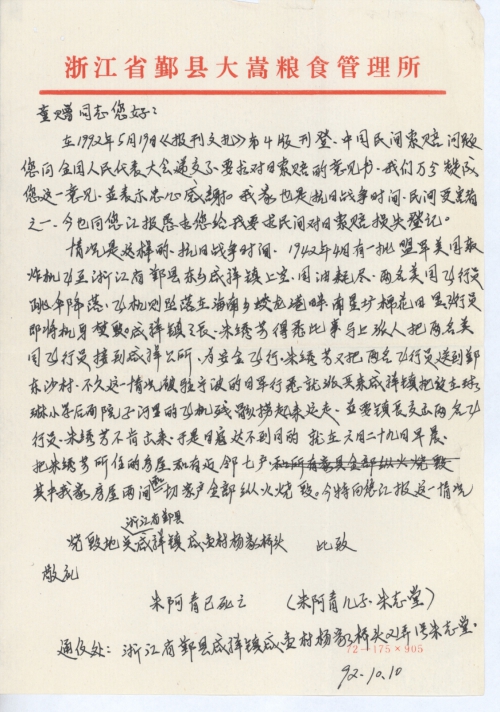 浙江省鄞县大嵩粮食管理所
童赠同志您好：
在1992年5月19日《报刊文摘》第4版刊登、中国民间索赔问题
您向全国人民代表大会递交了要求对日索赔的意见书、我们万分赞成
您这一意见、並表示衷心感谢。我家也是抗日战争时间、民间受害者
之一、今也向您汇报悬请您给我要求民间对日索赔损失登记。
情况是这样的、抗日战争时间、1942年4月有一批盟军美国轰
炸机飞至浙江省鄞县东乡咸祥镇上空、因油耗尽、两名美国飞行员
跳伞降落、飞机则坠落在海南乡 棉花田 飞行员
即将机身焚毁。咸祥镇镇长、朱绣芳得悉此事马上派人把两名美
国飞行员接到咸祥公所、为安全飞行、朱绣芳又把两名飞行员送到鄞
东沙村、不久这一情况被驻宁波的日军行悉就派兵来咸祥镇把放在球
琳小学后面院子河里的飞机残骸捞起来运走、並要镇长交出两名飞
行员、朱绣芳不肯出来、于是日寇达不到目的 就在六月二十九日早晨、
把朱绣芳所住的房屋和有近邻七户和所有家具全部纵火烧毁
其中我家房屋两间和一切家产全部纵火烧毁。今特向您汇报这一情况
浙江省鄞县
烧毁地点咸祥镇咸 村杨家桥头 此致
敬礼
朱阿青已死亡 （朱阿青儿子、朱志堂）
通讯处：浙江省鄞县咸祥镇咸 村杨家桥头21弄 朱志堂。
72—175×905
92.10.10